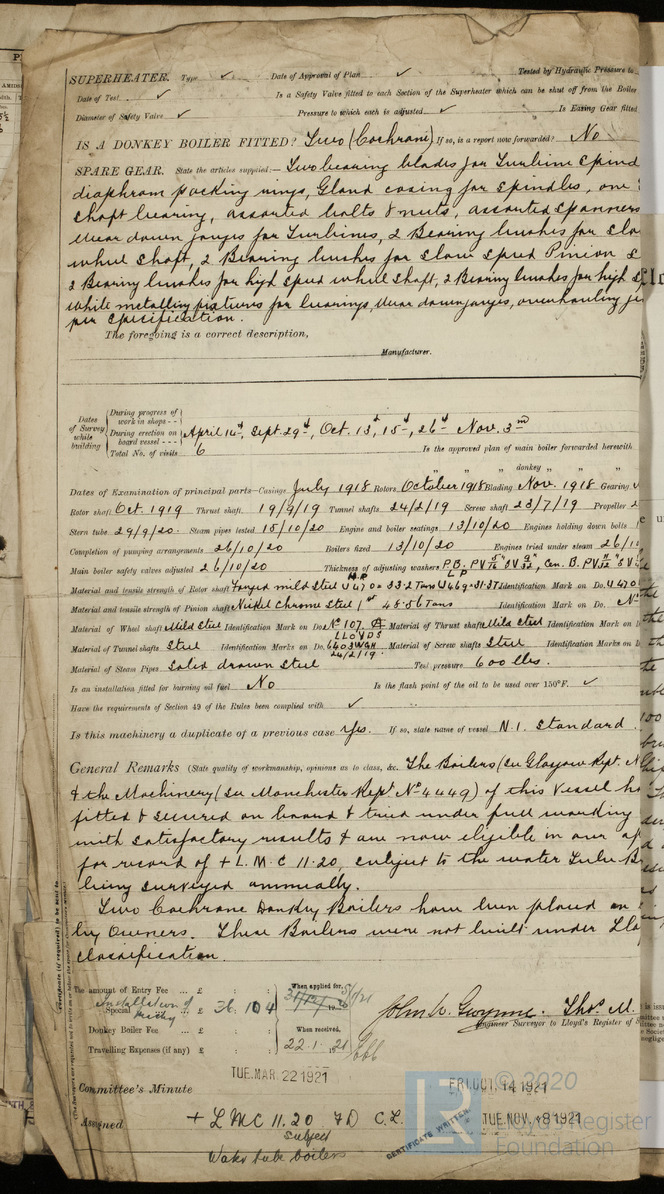 SUPERHEATER. Type ✓ Date of Approval of Plan ✓ Tested by Hydraulic Pressure to
Date of Test ✓ Is a Safety Valve fitted to each Section of the Superheater which can be shut off from the Boiler
Diameter of Safety Valve ✓ Pressure to which each is adjusted ✓ Is Easing Gear fitted
IS A DONKEY BOILER FITTED? Two (Cochrane) If so, is a report now forwarded? No
SPARE GEAR. State the articles supplied:— Two bearing blades for Turbine Spind
diaphram packing rings, Gland casing for Spindles, one
shaft bearing, assorted bolts & nuts, assorted Spanners
Wear down gauges for Turbines, 2 Bearing bushes for slo
wheel shaft, 2 Bearing bushes for slow speed Pinion S
2 Bearing bushes for high speed wheel shaft, 2 Bearing bushes for high S
White metalling fixtures for bearings, Wear down gauges, overhauling
per Specification.
The foregoing is a correct description,
Manufacturer.
Dates of Survey while building
During progress of work in shops - -
During erection on board vessel - - -
Total No. of visits
April 14th, Sept. 29th, Oct. 13th, 15th, 26th Nov. 3rd
6 Is the approved plan of main boiler forwarded herewith
" " donkey " "
Dates of Examination of principal parts—Casings July 1918 Rotors October 1918 Blading Nov. 1918 Gearing
Rotor shaft Oct. 1919 Thrust shaft 19/9/19 Tunnel shafts 24/2/19 Screw shaft 23/7/19 Propeller
Stern tube 29/9/20 Steam pipes tested 15/10/20 Engine and boiler seatings 13/10/20 Engines holding down bolts
Completion of pumping arrangements 26/10/20 Boilers fixed 13/10/20 Engines tried under steam 26/10
Main boiler safety valves adjusted 26/10/20 Thickness of adjusting washers P.B. PV 5/16 SV 9/32, Cen. B. PV
Material and tensile strength of Rotor shaft Forged mild Steel H.P. U470 = 33.2 Tons L.P. U469 = 31.3T Identification Mark on Do. U470
Material and tensile strength of Pinion shaft Nickel Chrome Steel 1st 48.56 Tons Identification Mark on Do. No
Material of Wheel shaft Mild Steel Identification Mark on Do. No 107 Material of Thrust shaft Mild Steel Identification Mark on
Material of Tunnel shafts Steel Identification Marks on Do. LLOYDS 6403 WGH 24/2/19. Material of Screw shafts Steel Identification Marks on
Material of Steam Pipes Solid drawn Steel Test pressure 600 lbs.
Is an installation fitted for burning oil fuel No Is the flash point of the oil to be used over 150°F. ✓
Have the requirements of Section 49 of the Rules been complied with ✓
Is this machinery a duplicate of a previous case Yes. If so, state name of vessel N.1. Standard
General Remarks (State quality of workmanship, opinions as to class, &c. The Boilers (see Glasgow Rept. N
& the Machinery (see Manchester Rept. No 4449) of this Vessel ha
fitted & secured on board & tried under full working
with satisfactory results & are now eligible in our op
for record of + L.M.C 11.20, subject to the water Tube B
being surveyed annually.
Two Cochrane Donkey Boilers have been placed on
by Owners. These Boilers were not built under Llo
classification.
The amount of Entry Fee ... £ : :
Installation of
Special ... £ 36 : 10 : 4
Donkey Boiler Fee ... £ : :
Travelling Expenses (if any) £ : :
When applied for,
5/1/21
When received,
22.1.21
John W. Gwynne. Thos. M.
Engineer Surveyor to Lloyd's Register of S
TUE. MAR. 22 1921
FRI. OCT. 14 1921
Committee's Minute
TUE. NOV. -8 1921
Assigned + L M C 11.20 FD C.L.
subject
Water tube boilers
CERTIFICATE WRITTEN
© 2020
LR
Lloyd's Register
Foundation